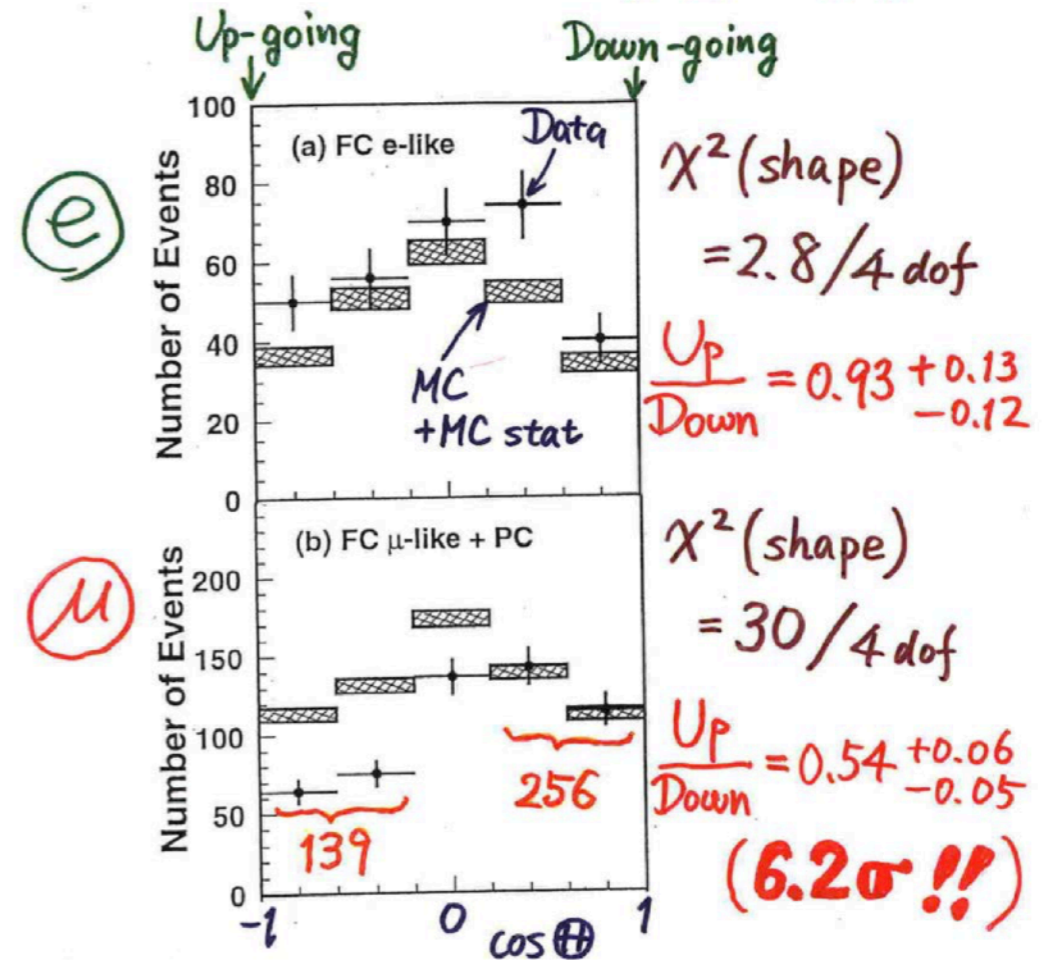 Up-going
Down-going
100
80
60
40
20
0
Number of Events
(a) FC e-like
Data
MC
+MC stat
e
χ² (shape)
= 2.8 / 4 dof
Up
Down
= 0.93 +0.13
−0.12
200
150
100
50
0
Number of Events
(b) FC μ-like + PC
μ
139
256
χ² (shape)
= 30 / 4 dof
Up
Down
= 0.54 +0.06
−0.05
(6.2σ !!)
-1
0
1
cos Θ